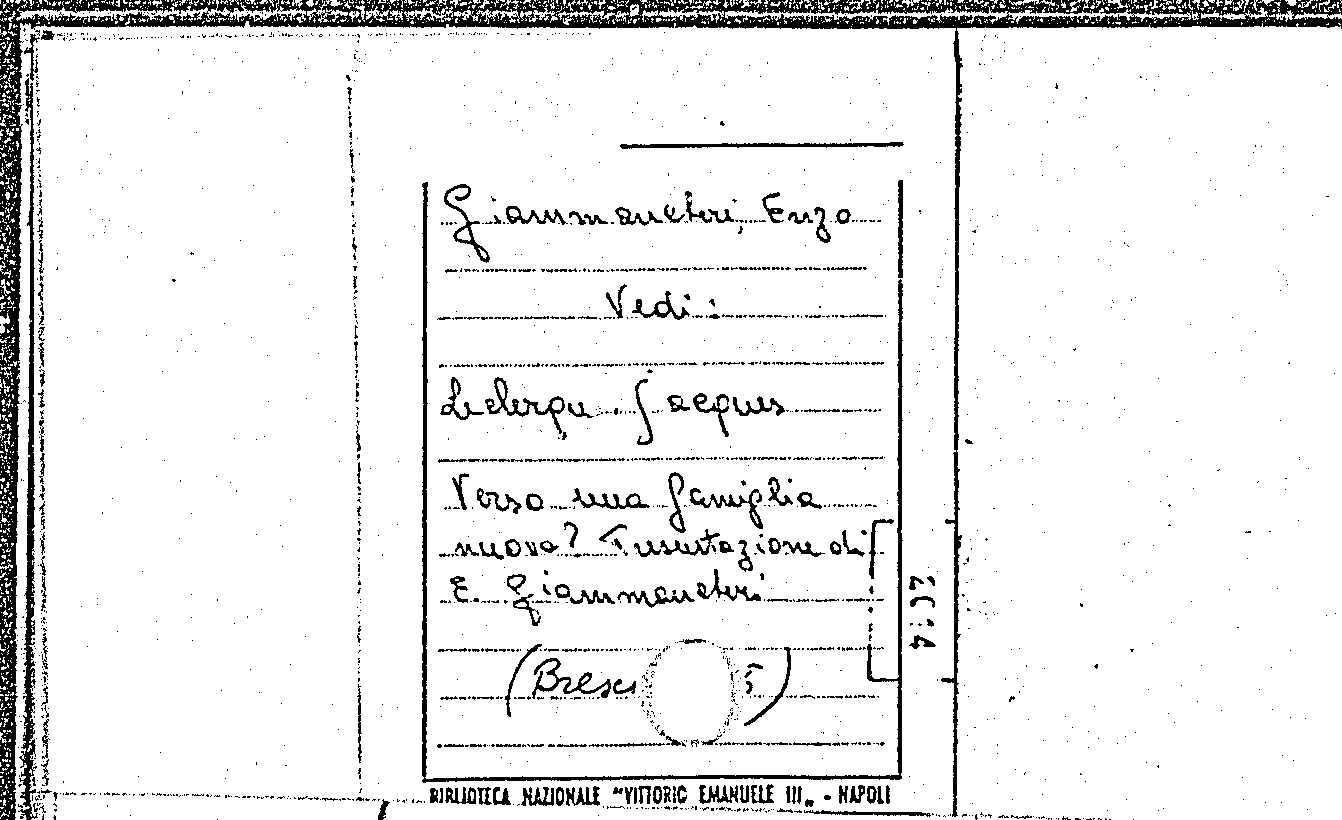 Giammancheri, Enzo
Vedi:
Leclercq, Jacques
Verso una famiglia
nuova? Presentazione di
E. Giammancheri
(Bresc 5)
BIBLIOTECA NAZIONALE "VITTORIO EMANUELE III„ - NAPOLI